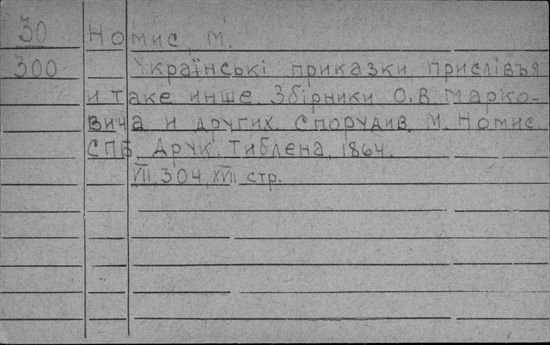 30 Номис, М.
300 Українські приказки, прислівъя
и таке инше. Збірники О.В. Марко-
вича и других. Спорудив М. Номис.
СПБ. Друк. Тиблена, 1864.
VII, 304, XVII стр.